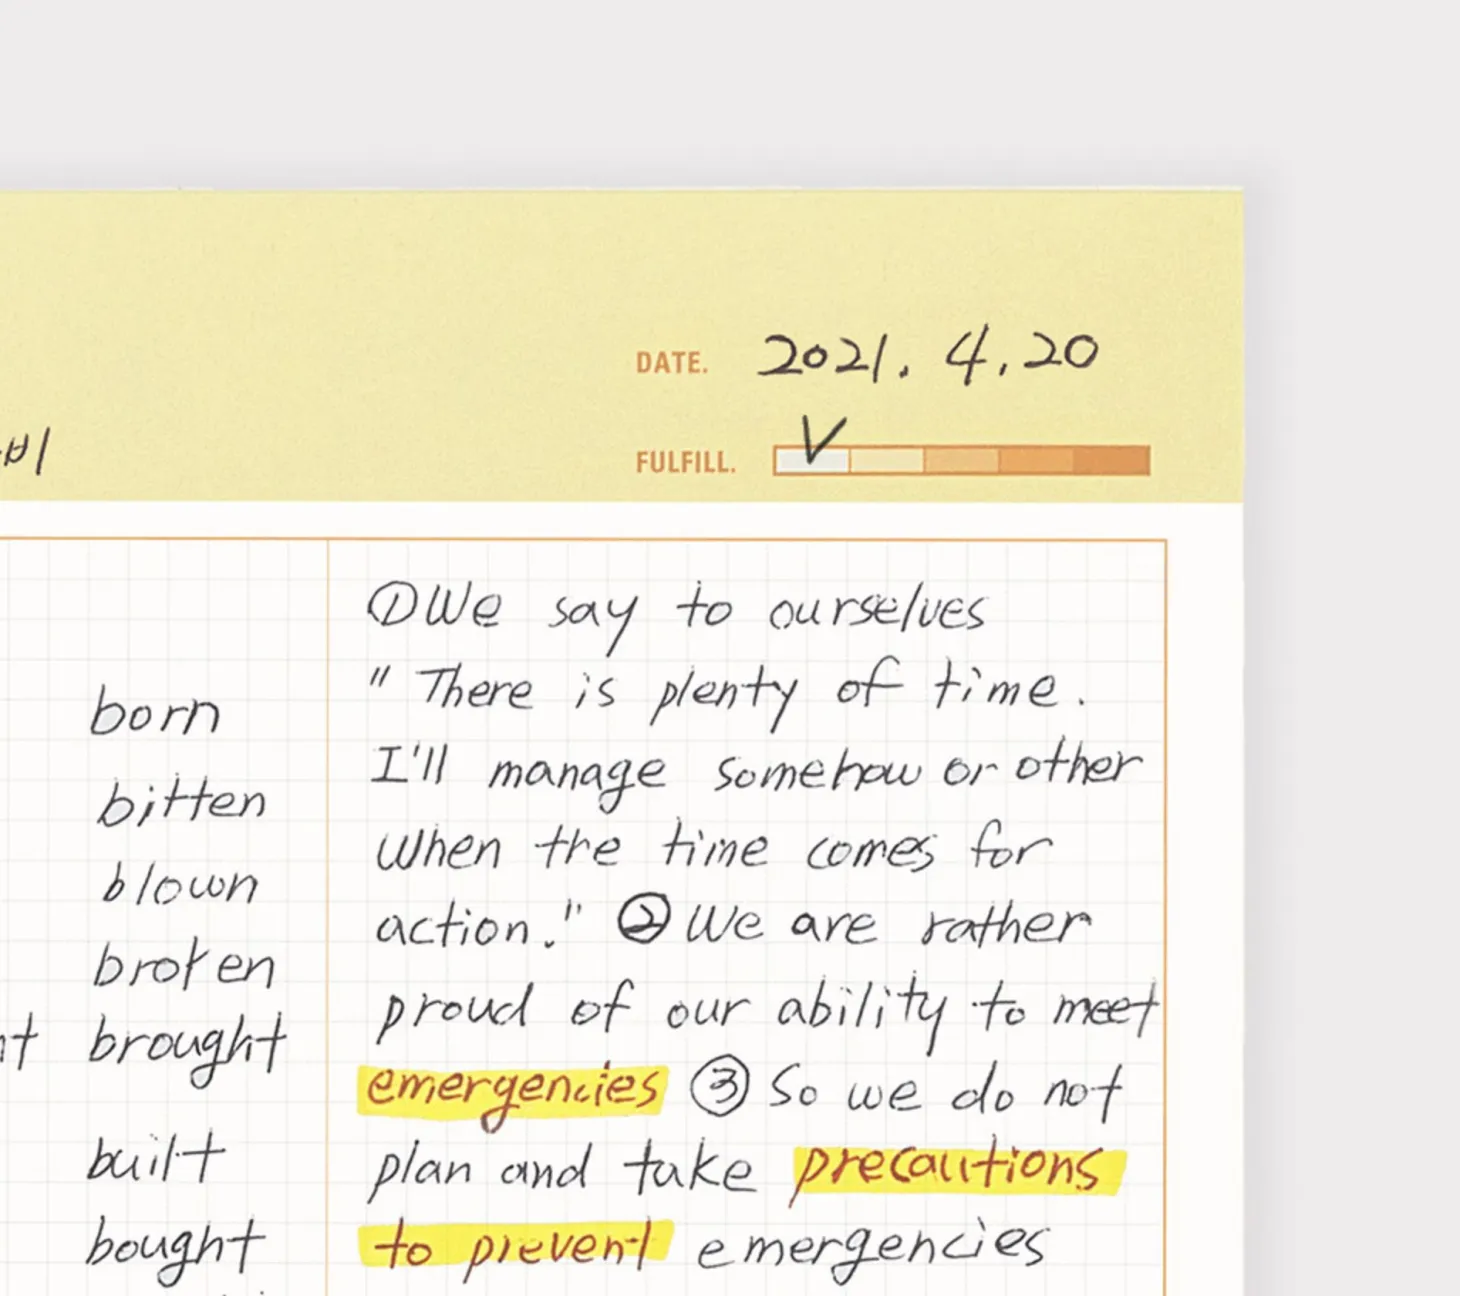 DATE. 2021. 4. 20
비
FULFILL.
born
bitten
blown
broken
brought
built
bought
①We say to ourselves
"There is plenty of time.
I'll manage somehow or other
when the time comes for
action." ②We are rather
proud of our ability to meet
emergencies ③So we do not
plan and take precautions
to prevent emergencies